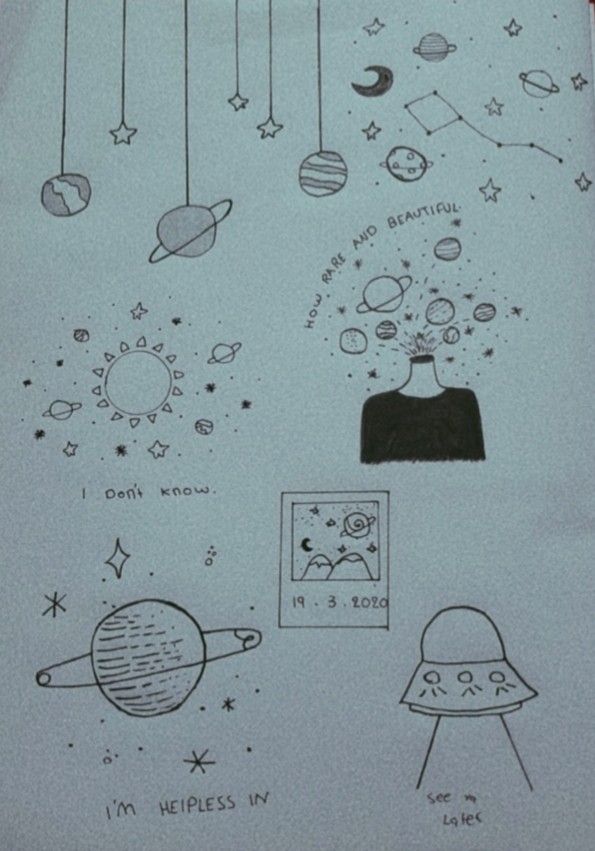 HOW RARE AND BEAUTIFUL.
I Don't know.
19.3.2020
I'M HElPLESS IN
see
Later